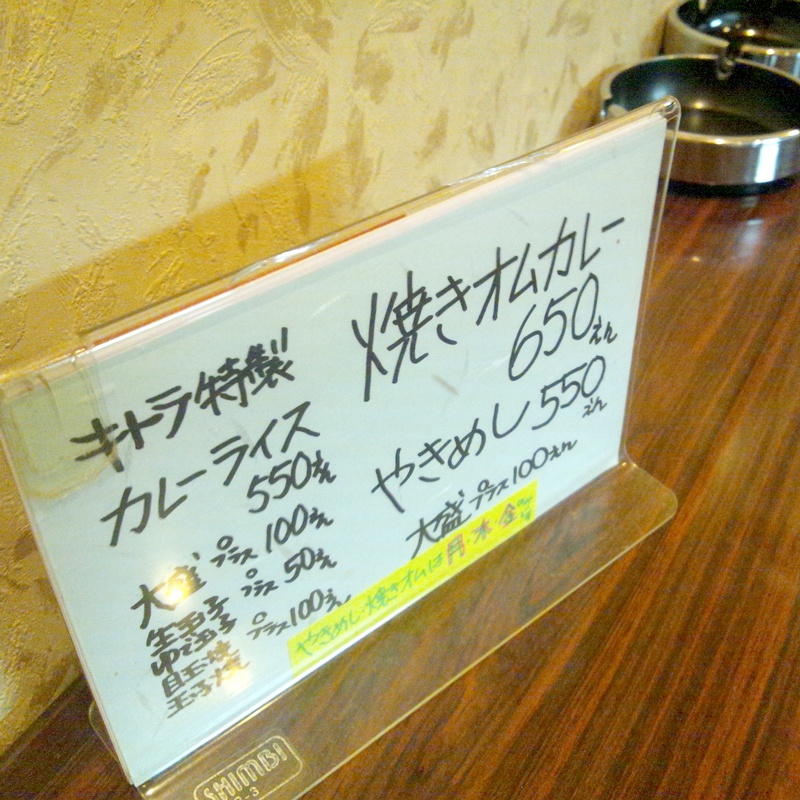 キトラ特製
カレーライス
550えん
大盛 プラス100えん
生玉子 プラス50えん
ゆで玉子
目玉焼 プラス100えん
玉子焼
焼きオムカレー
650えん
やきめし550えん
大盛プラス100えん
やきめし・焼きオムは月・水・金
SHIMBI